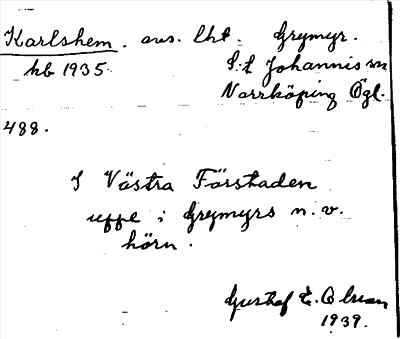 Karlshem. avs. lht. Grymyr.
kb 1935. S:t Johannis sn
Norrköping Ögl.
488.
I Västra Förstaden
uppe i Grymyrs n.v.
hörn.
Gustaf E. Olsson
1939.